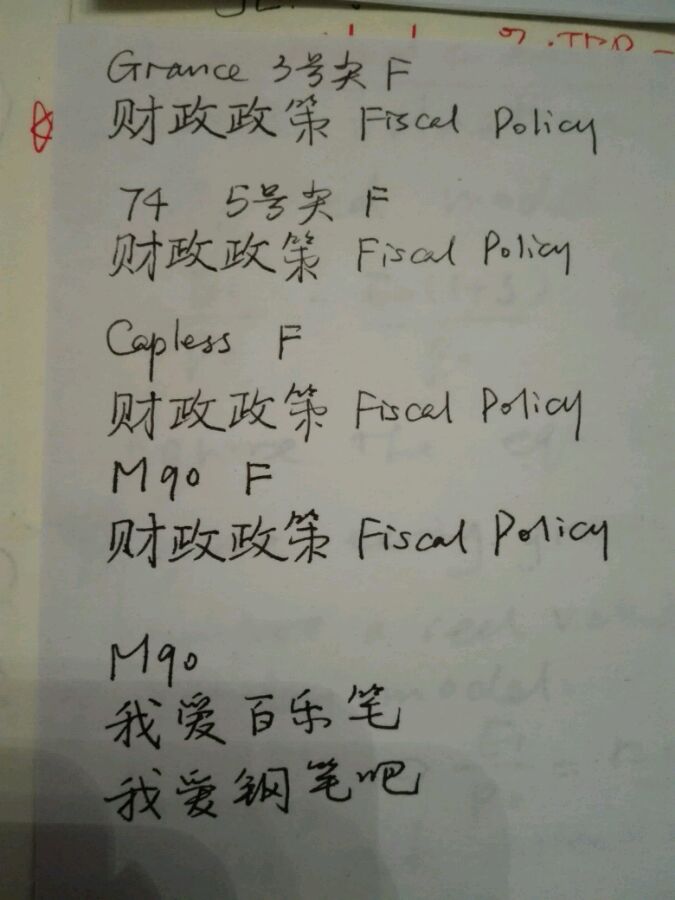 Grance 3号尖 F
财政政策 Fiscal Policy
74 5号尖 F
财政政策 Fiscal Policy
Capless F
财政政策 Fiscal Policy
M90 F
财政政策 Fiscal Policy
M90
我爱百乐笔
我爱钢笔吧